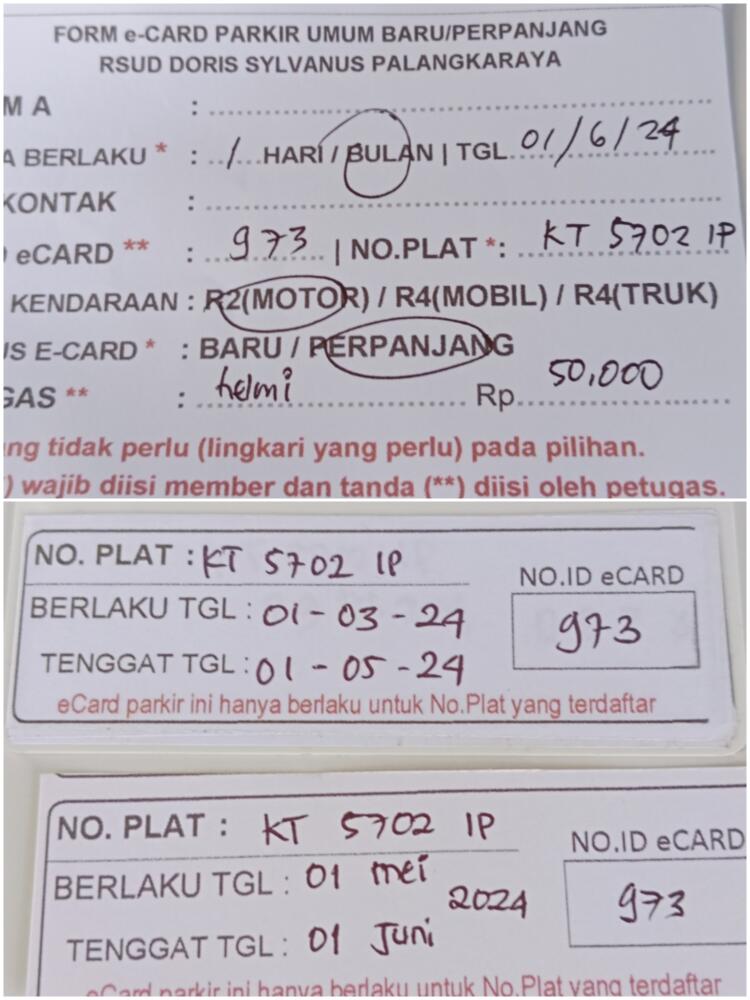 FORM e-CARD PARKIR UMUM BARU/PERPANJANG
RSUD DORIS SYLVANUS PALANGKARAYA
M A :
A BERLAKU * : 1 HARI / BULAN | TGL. 01/6/24
KONTAK :
eCARD ** : 973 | NO.PLAT *: KT 5702 IP
KENDARAAN : R2(MOTOR) / R4(MOBIL) / R4(TRUK)
US E-CARD * : BARU / PERPANJANG
GAS ** : helmi Rp. 50,000
ng tidak perlu (lingkari yang perlu) pada pilihan.
) wajib diisi member dan tanda (**) diisi oleh petugas.
NO. PLAT : KT 5702 IP
NO.ID eCARD
BERLAKU TGL : 01-03-24
973
TENGGAT TGL : 01-05-24
eCard parkir ini hanya berlaku untuk No.Plat yang terdaftar
NO. PLAT : KT 5702 IP
NO.ID eCARD
BERLAKU TGL : 01 mei
2024
973
TENGGAT TGL : 01 Juni
eCard parkir ini hanya berlaku untuk No.Plat yang terdaftar